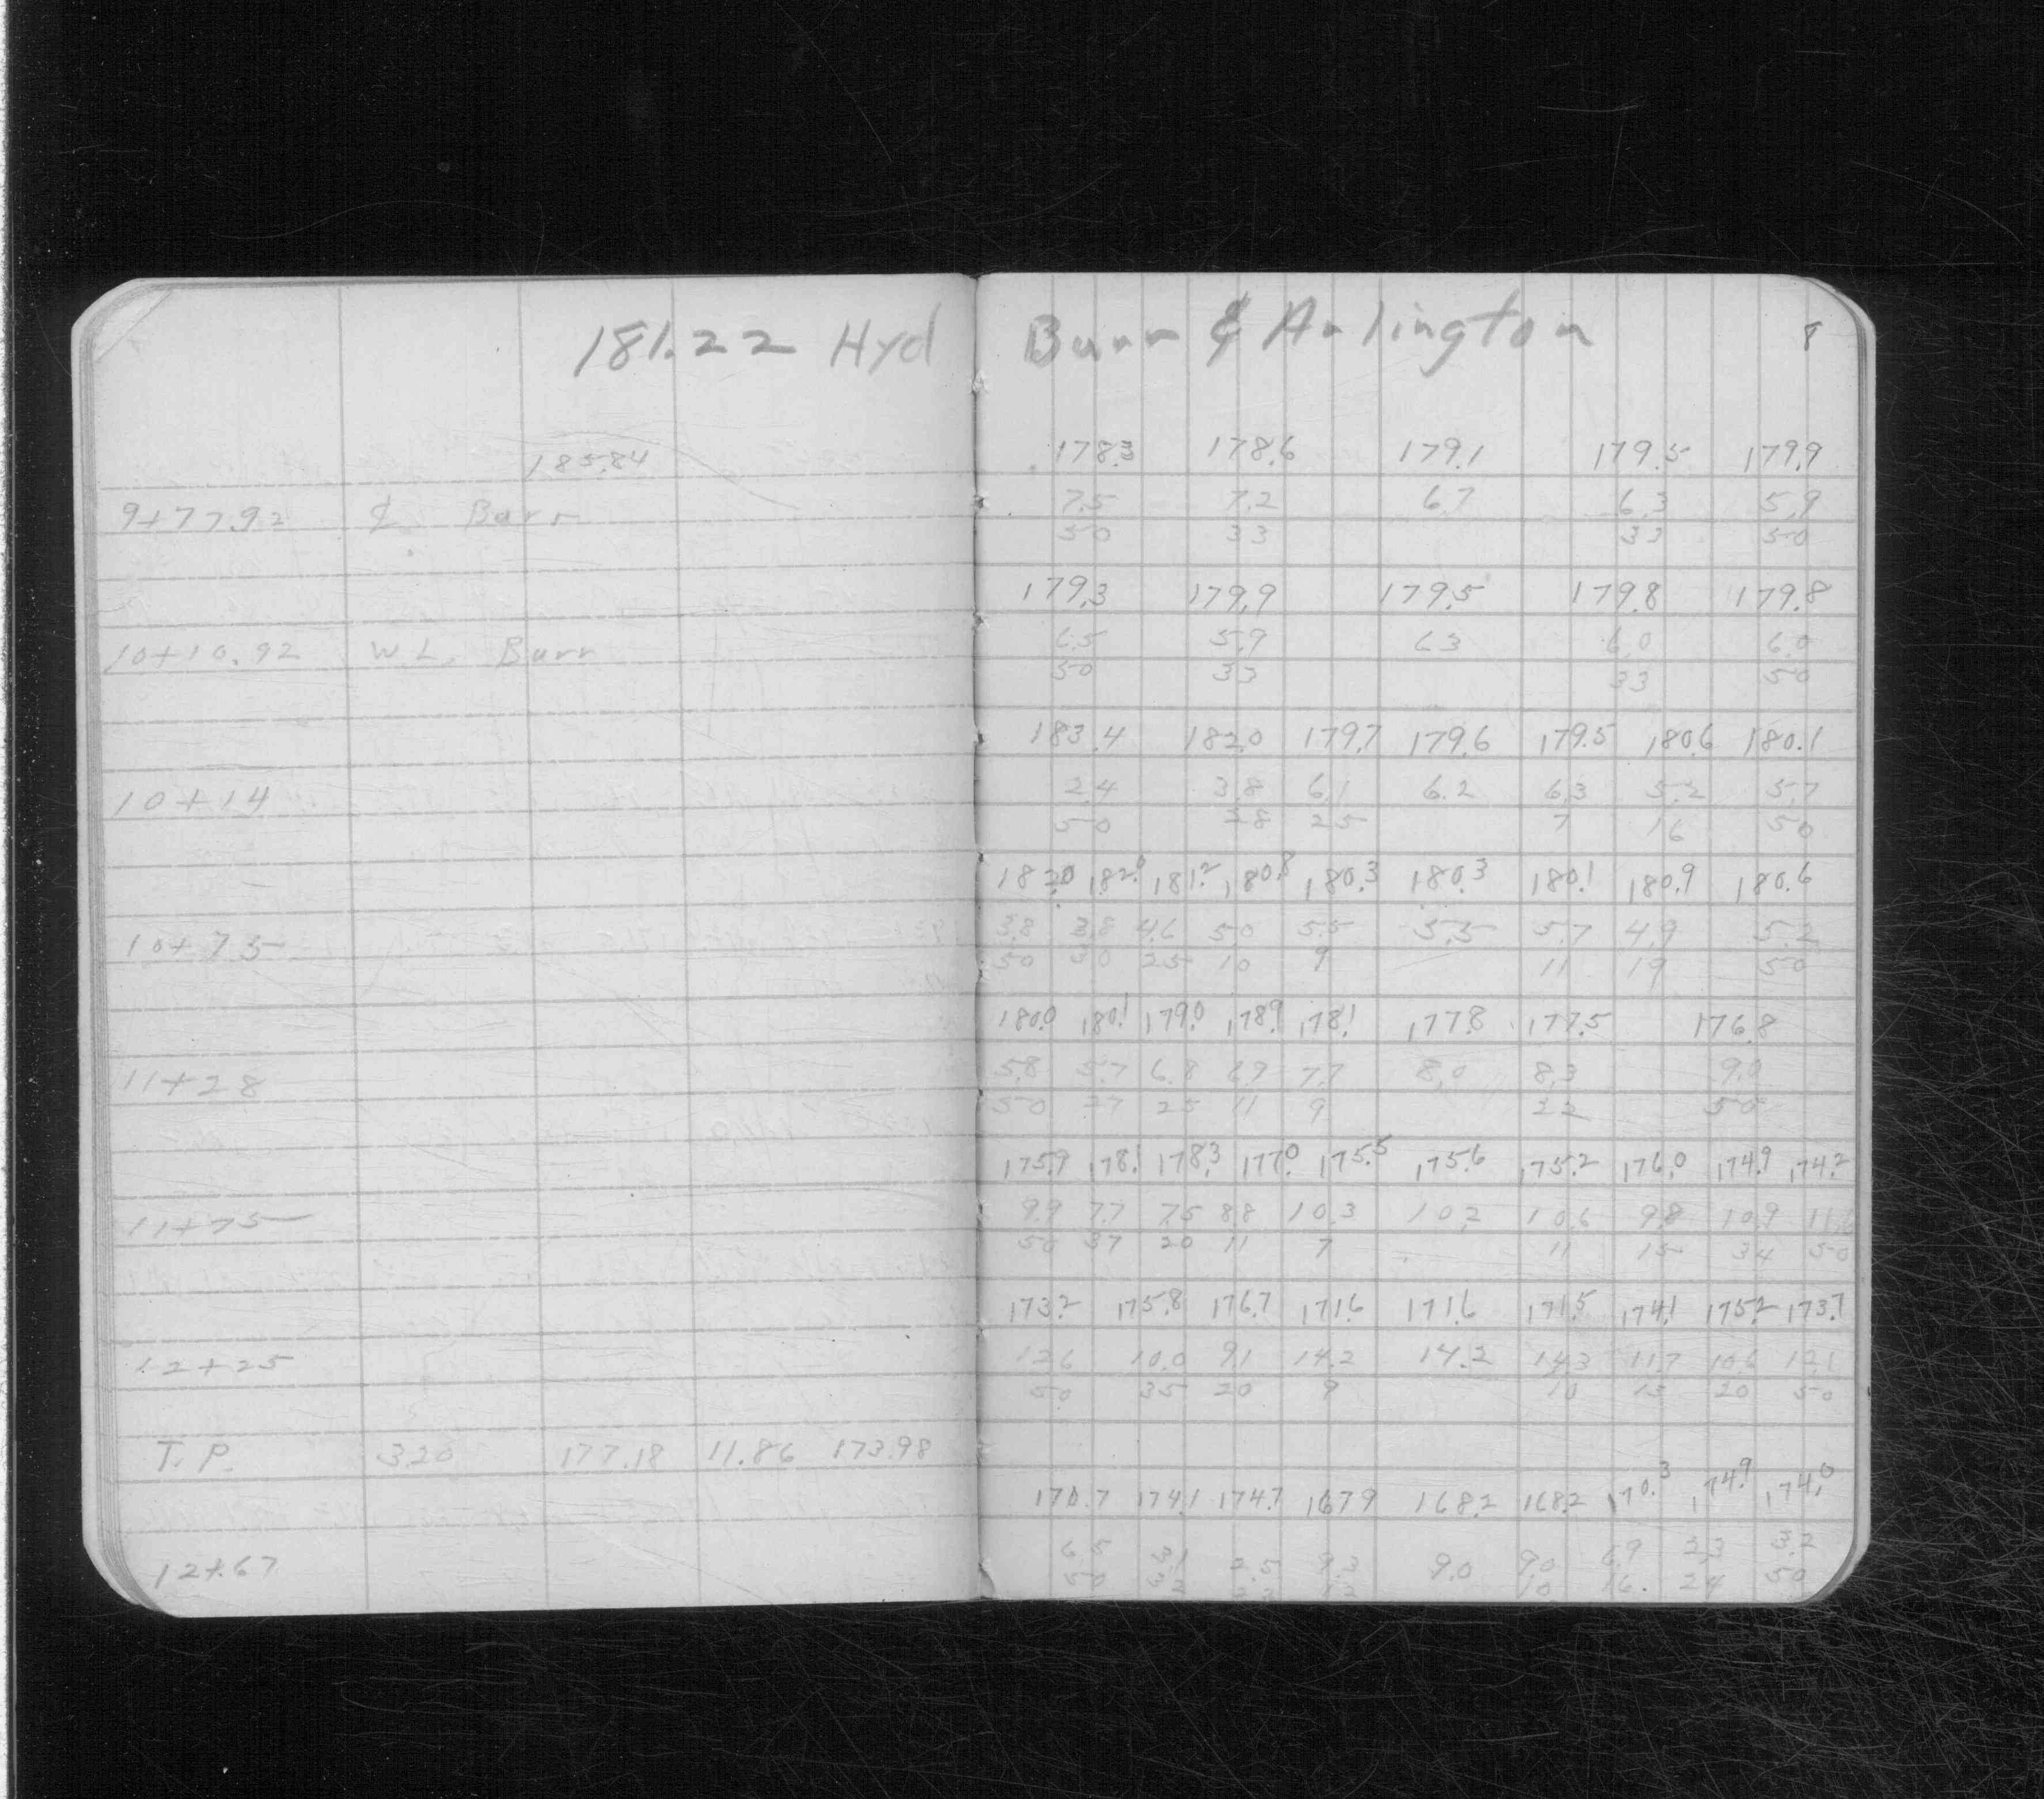 181.22 Hyd Burr & Arlington 8
185.84 178.3 178.6 179.1 179.5 179.9
9+77.92 ℄ Burr 7.5 7.2 6.7 6.3 5.9
50 33 33 50
179.3 179.9 179.5 179.8 179.8
10+10.92 W.L. Burr 6.5 5.9 6.3 6.0 6.0
50 33 33 50
183.4 182.0 179.7 179.6 179.5 180.6 180.1
10+14 2.4 3.8 6.1 6.2 6.3 5.2 5.7
50 28 25 7 16 50
182.0 182.0 181.2 180.8 180.3 180.3 180.1 180.9 180.6
10+75 3.8 3.8 4.6 5.0 5.5 5.5 5.7 4.9 5.2
50 30 25 10 9 11 19 50
180.0 180.1 179.0 178.9 178.1 177.8 177.5 176.8
11+28 5.8 5.7 6.8 6.9 7.7 8.0 8.3 9.0
50 27 25 11 9 22 50
175.9 178.1 178.3 177.0 175.5 175.6 175.2 176.0 174.9 174.2
11+75 9.9 7.7 7.5 8.8 10.3 10.2 10.6 9.8 10.9 11.6
50 37 20 11 7 11 15 34 50
173.2 175.8 176.7 171.6 171.6 171.5 174.1 175.2 173.7
12+25 12.6 10.0 9.1 14.2 14.2 14.3 11.7 10.6 12.1
50 35 20 9 10 15 20 50
T.P. 3.20 177.18 11.86 173.98
170.7 174.1 174.7 167.9 168.2 168.2 170.3 174.9 174.0
12+67 6.5 3.1 2.5 9.3 9.0 9.0 6.9 2.3 3.2
50 32 12 10 16 24 50